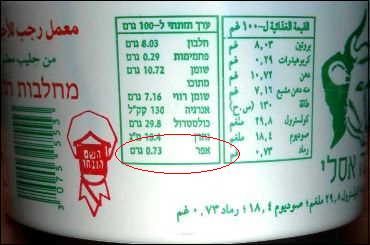 معمل رجب للأ
من حليب مطـ
מחלבות ר
ערך תזונתי ל-100 גרם
חלבון 8.03 גרם
פחמימות 0.29 גרם
שומן 10.72 גרם
מתוכו
שומן רווי 7.16 גרם
אנרגיה 130 קק"ל
כולסטרול 29.8
נתרן 18.4 מ"ג
אפר 0.73 גרם
القيمة الغذائية ل-١٠٠ غم
بروتين ٨,٠٣ غم
كربوهيدرات ٠,٢٩ غم
دهن ١٠,٧٢ غم
دهن منه مشبع ٧,١٦ غم
طاقة ١٣٠
كولسترول ٢٩,٨ ملغم
صوديوم ١٨,٤ ملغم
رماد ٠,٧٣ غم
אסלי
٢٩,٨ ملغم؛ صوديوم ١٨,٤؛ رماد ٠,٧٣ غم
3075553